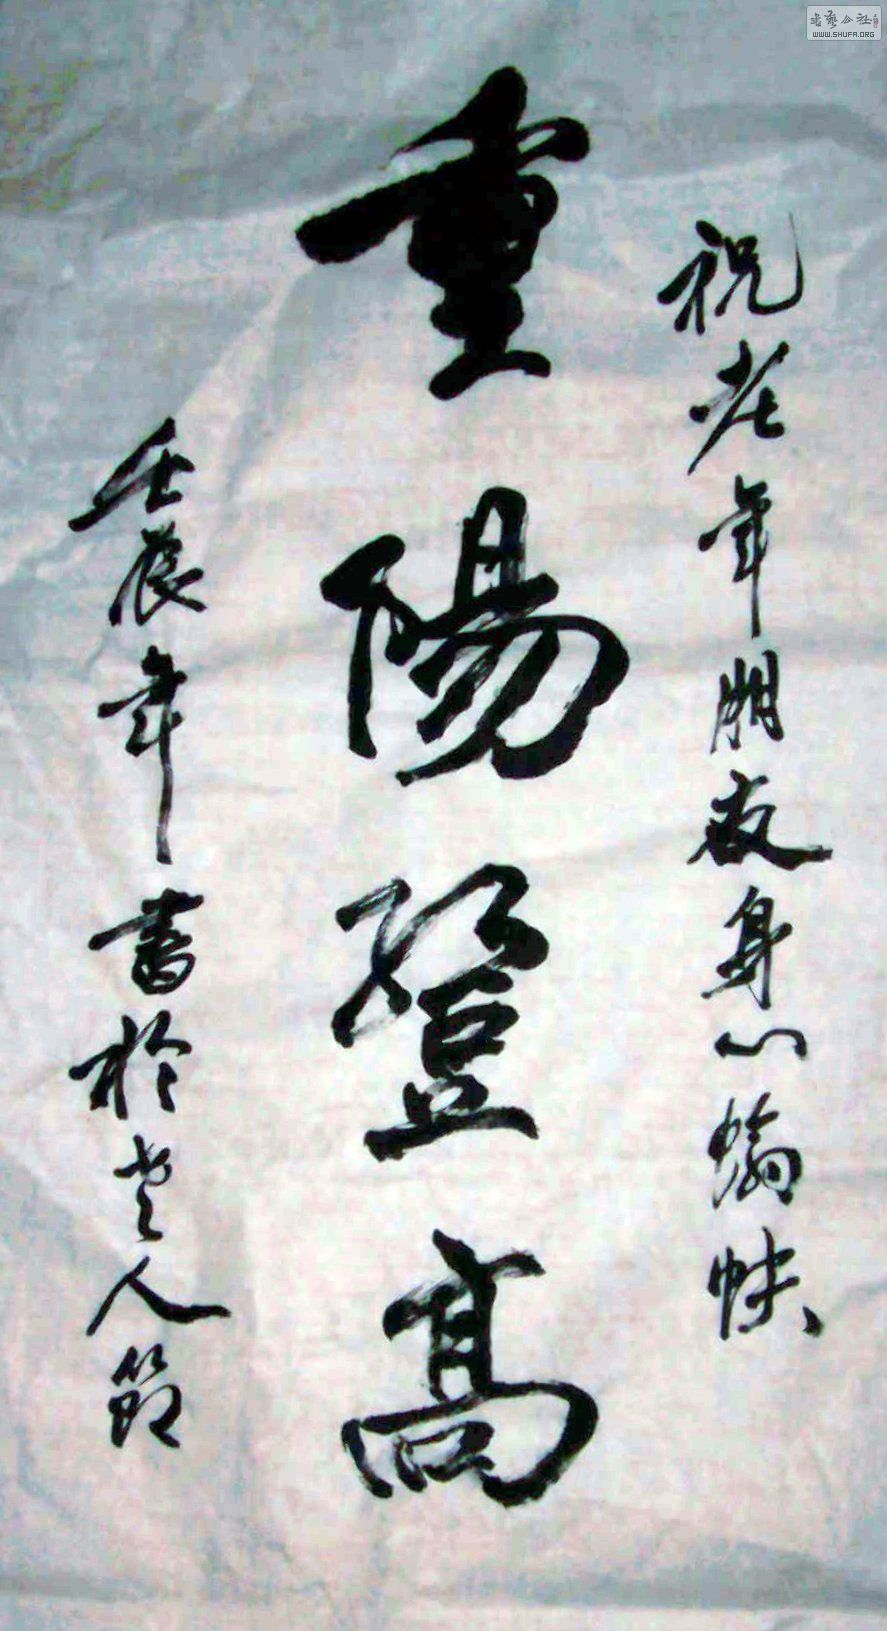 祝老年朋友身心愉快
重陽登高
壬辰年書於老人節
書藝公社
WWW.SHUFA.ORG